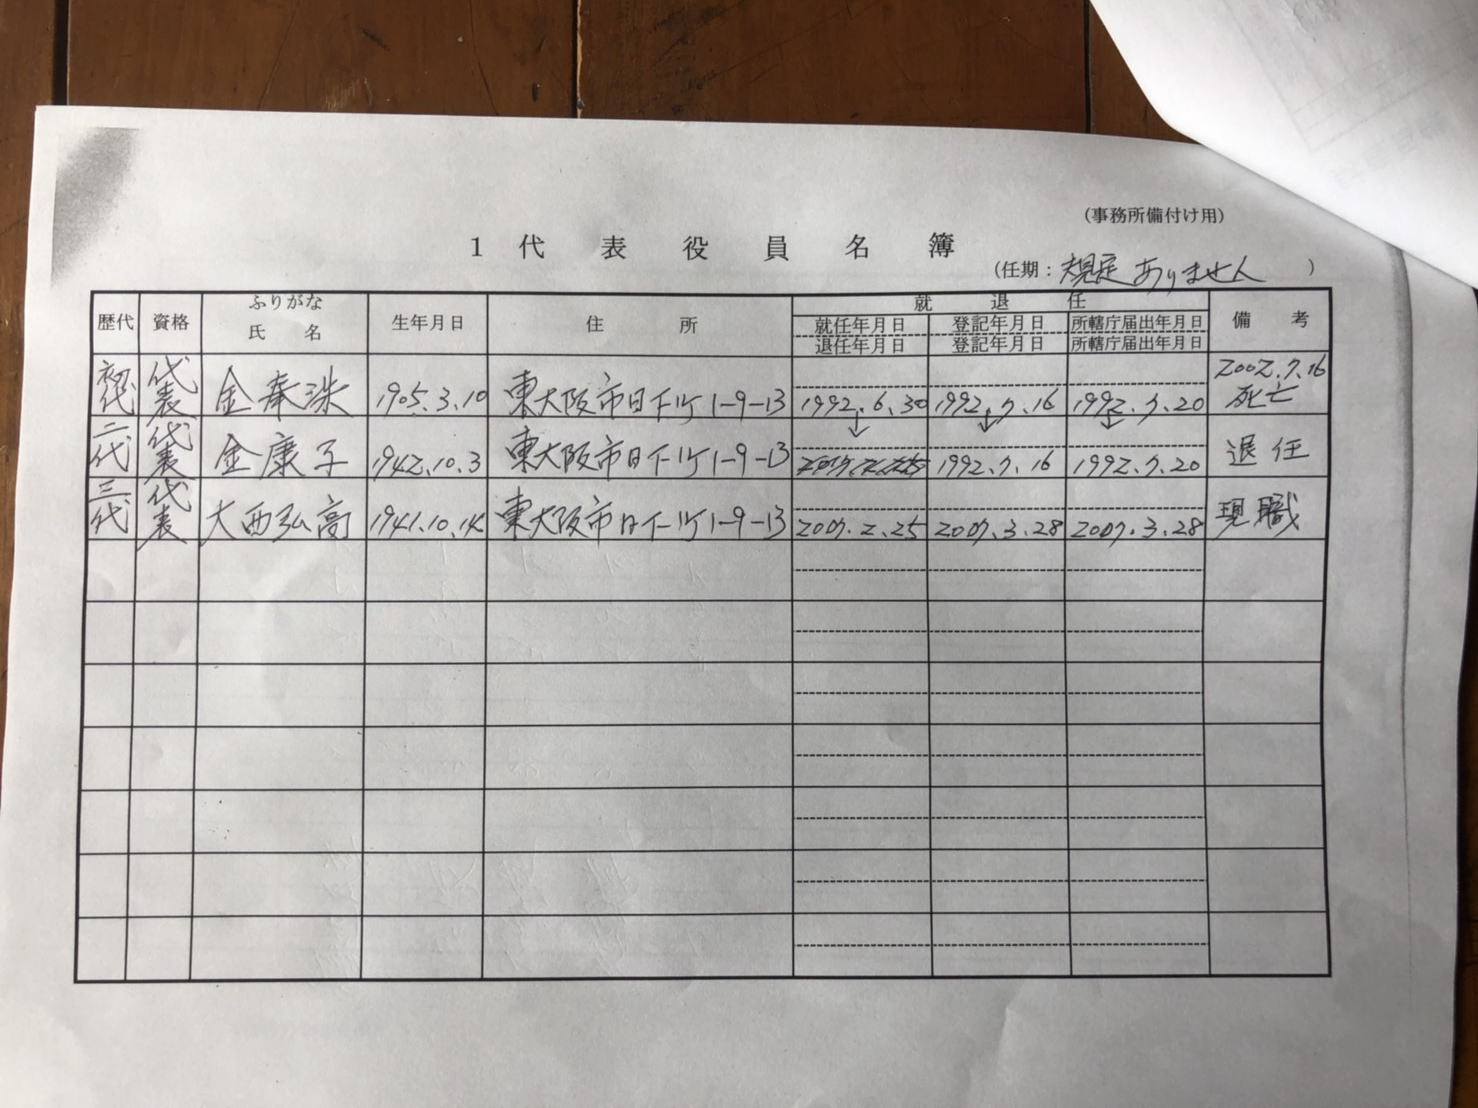 (事務所備付け用)
1 代表役員名簿
(任期：規定ありません)
歴代 資格 ふりがな 氏名 生年月日 住所 就退任 備考
就任年月日 登記年月日 所轄庁届出年月日
退任年月日 登記年月日 所轄庁届出年月日
初代 代表 金奉洙 1905.3.10 東大阪市日下町1-9-13 1992.6.30 1992.7.16 1992.7.20 2002.7.16 死亡
二代 代表 金康子 1942.10.3 東大阪市日下町1-9-13 1992.7.16 1992.7.20 退任
三代 代表 大西弘高 1941.10.14 東大阪市日下町1-9-13 2007.2.25 2007.3.28 2007.3.28 現職